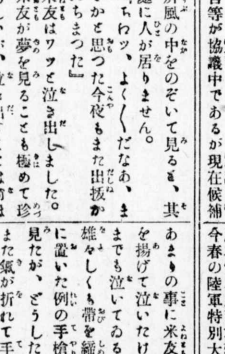 官等が協議中であるが現在候補
屏風の中をのぞいて見ると、其
に人が居りません。
ちわッ、よく〳〵だなあ、ま
かと思つた今夜もまた出抜か
ちまつた』
友はワッと泣き出しました。
友が夢を見ることも極めて珍
今春の陸軍特別大
あまりの事に米友
を揚げて泣いたけ
までも泣いてゐる
雄々しくも帶を締
に置いた例の手槍
見たが、どうした
また氣が折れて手